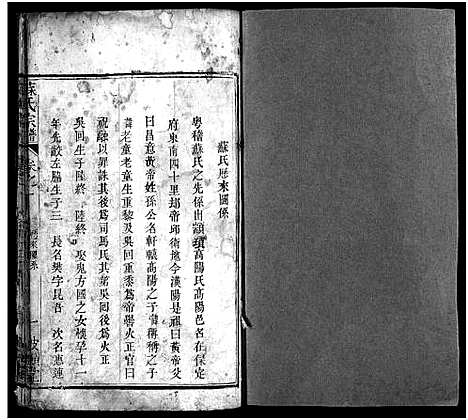 蘇氏歷來圖係
粵稽蘇氏之先係出顓頊高陽氏高陽邑名在保定
府東南四十里却帝邱衛地今漢陽是祖曰黃帝父
曰昌意黃帝姓孫公名軒轅高陽之子稱稱之子
老童老童生重黎及吳回重黎為帝嚳火正官曰
祝融以罪誅其後為司馬氏其弟吳回後為火正
吳回生子陸終 陸終 娶鬼方國之女樓孕十一
年先啟左脇生子三 長名樊字昆吾 次名惠連
蘇氏宗譜 卷之一